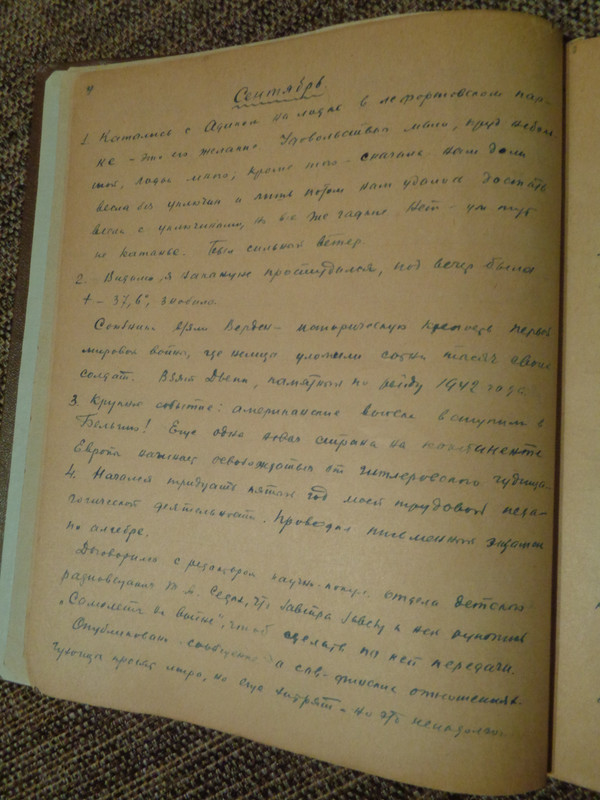 Сентябрь
1. Катались с Адиком на лодке в лефортовском пар-
ке – это его желание. Удовольствия мало, пруд неболь-
шой, лодок мало, кроме того – сначала нам дали
весла без уключин и лишь потом нам удалось достать
весла с уключинами, но все же гадкие. Нет – уж тут
не катанье. Был сильный ветер.
2. Видимо, я накануне простудился, под вечер была
t – 37,6°, знобило.
Союзники взяли Верден – историческую крепость первой
мировой войны, где немцы уложили сотни тысяч своих
солдат. Взят Дьепп, памятный по рейду 1942 года.
3. Крупное событие: американские войска вступили в
Бельгию! Еще одна новая страна на континенте
Европы начинает освобождаться от гитлеровского чудища.
4. Начался тридцать пятый год моей трудовой педа-
гогической деятельности. Проводил письменный экзамен
по алгебре.
Договорился с редактором научно-попул. отдела детского
радиовещания что завтра к ней рукопись
"Самолеты на войне", чтоб сделать по ней передачи.
Опубликовано сообщение о сов-финских отношениях.
просят мира, но еще хитрят – но это ненадолго